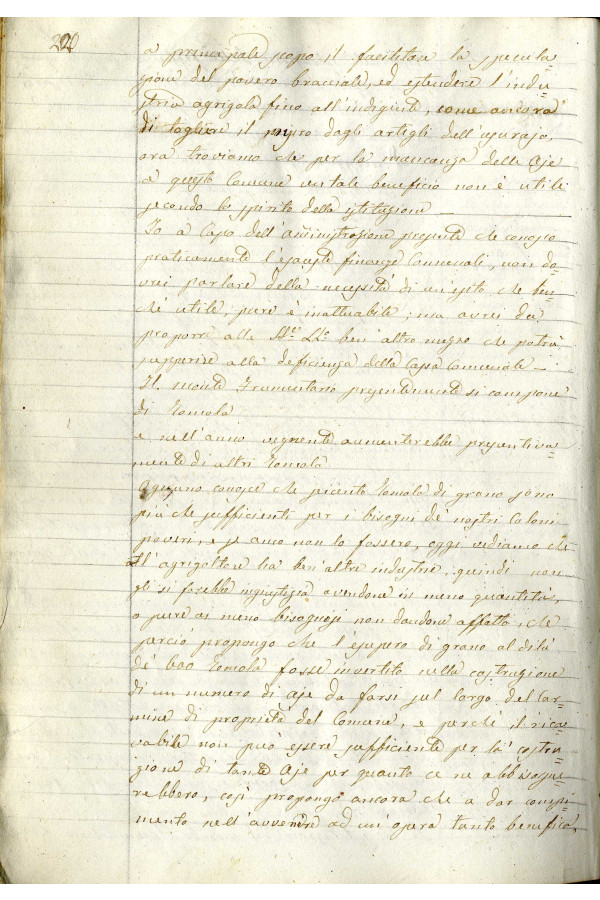 220
a principale scopo il facilitare la specula=
zione del povero bracciale, ed estendere l'indu=
stria agrigola fino all'indigente, come ancora
di togliere il misero dagli artigli dell'usurajo,
ora troviamo che per la mancanza delle Aje
a questo Comune un tale beneficio non è utile
secondo lo spirito della istituzione
Io a Capo dell'Amministrazione presente che conosco
praticamente l'esauste finanze Comunali, non do=
vrei parlare della necessità di un esito che ben=
chè utile pure è inattuabile; ma avrei da
proporre alle ben altro mezzo che potrà
sopperire alla deficienza della Cassa Comunale
Il monte Frumentario presentemente si compone
di Tomola
e nell'anno vegnente aumenterebbe presuntiva=
mente di altri Tomola
Ognuno conosce che seicento Tomola di grano sono
più che sufficienti per i bisogni de' nostri Coloni
poveri, e se anco non lo fossero, oggi vediamo che
l'agrigoltore ha ben altre industrie, quindi non
gli si farebbe ingiustizia avendone in meno quantità,
o pure ai meno bisognosi non dandone affatto, che
perciò propongo che l'esupero di grano al di là
de' 600 Tomola fosse invertito nella costruzione
di un numero di aje da farsi sul largo del Car=
mine di proprietà del Comune, e perchè il rica=
vabile non può essere sufficiente per la costru=
zione di tante Aje per quanto ce ne abbisogne=
rebbero, così propongo ancora che a dar compi=
mento nell'avvenire ad un'opera tanto benefica,